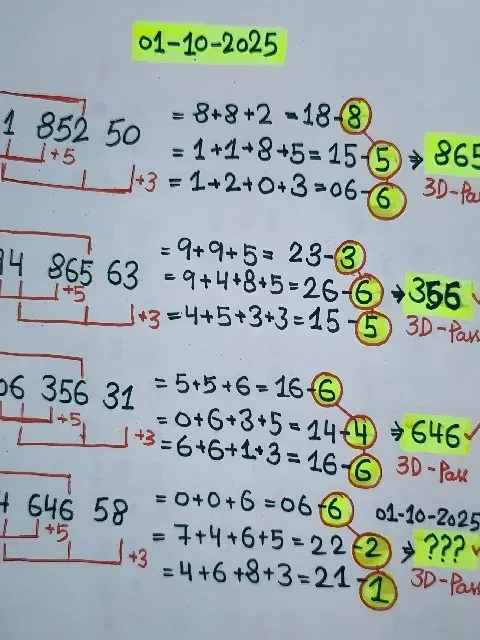 01-10-2025
1 852 50 = 8+8+2 = 18-8
+5 = 1+1+8+5 = 15-5 → 865
+3 = 1+2+0+3 = 06-6 3D-Pas
94 865 63 = 9+9+5 = 23-3
+5 = 9+4+8+5 = 26-6 → 356 ✓
+3 = 4+5+3+3 = 15-5 3D-Pass
06 356 31 = 5+5+6 = 16-6
+5 = 0+6+3+5 = 14-4 → 646 ✓
+3 = 6+6+1+3 = 16-6 3D-Pass
4 646 58 = 0+0+6 = 06-6 01-10-2025
+5 = 7+4+6+5 = 22-2 → ??? ✓
+3 = 4+6+8+3 = 21-1 3D-Pass